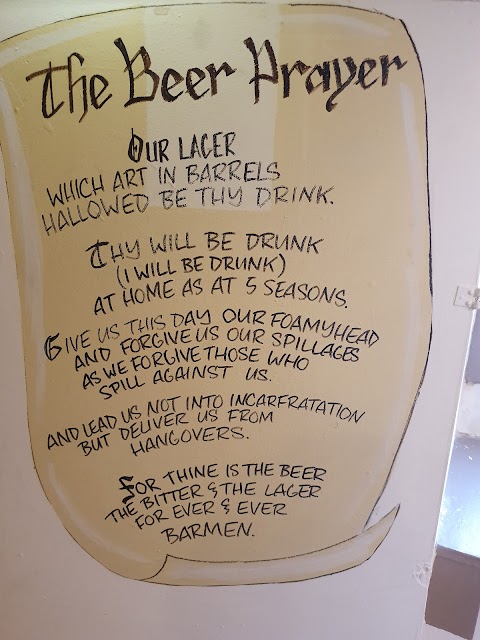 The Beer Prayer
OUR LAGER
WHICH ART IN BARRELS
HALLOWED BE THY DRINK.
THY WILL BE DRUNK
(I WILL BE DRUNK)
AT HOME AS AT 5 SEASONS.
GIVE US THIS DAY OUR FOAMYHEAD
AND FORGIVE US OUR SPILLAGES
AS WE FORGIVE THOSE WHO
SPILL AGAINST US.
AND LEAD US NOT INTO INCARFRATATION
BUT DELIVER US FROM
HANGOVERS.
FOR THINE IS THE BEER
THE BITTER & THE LAGER
FOR EVER & EVER
BARMEN.